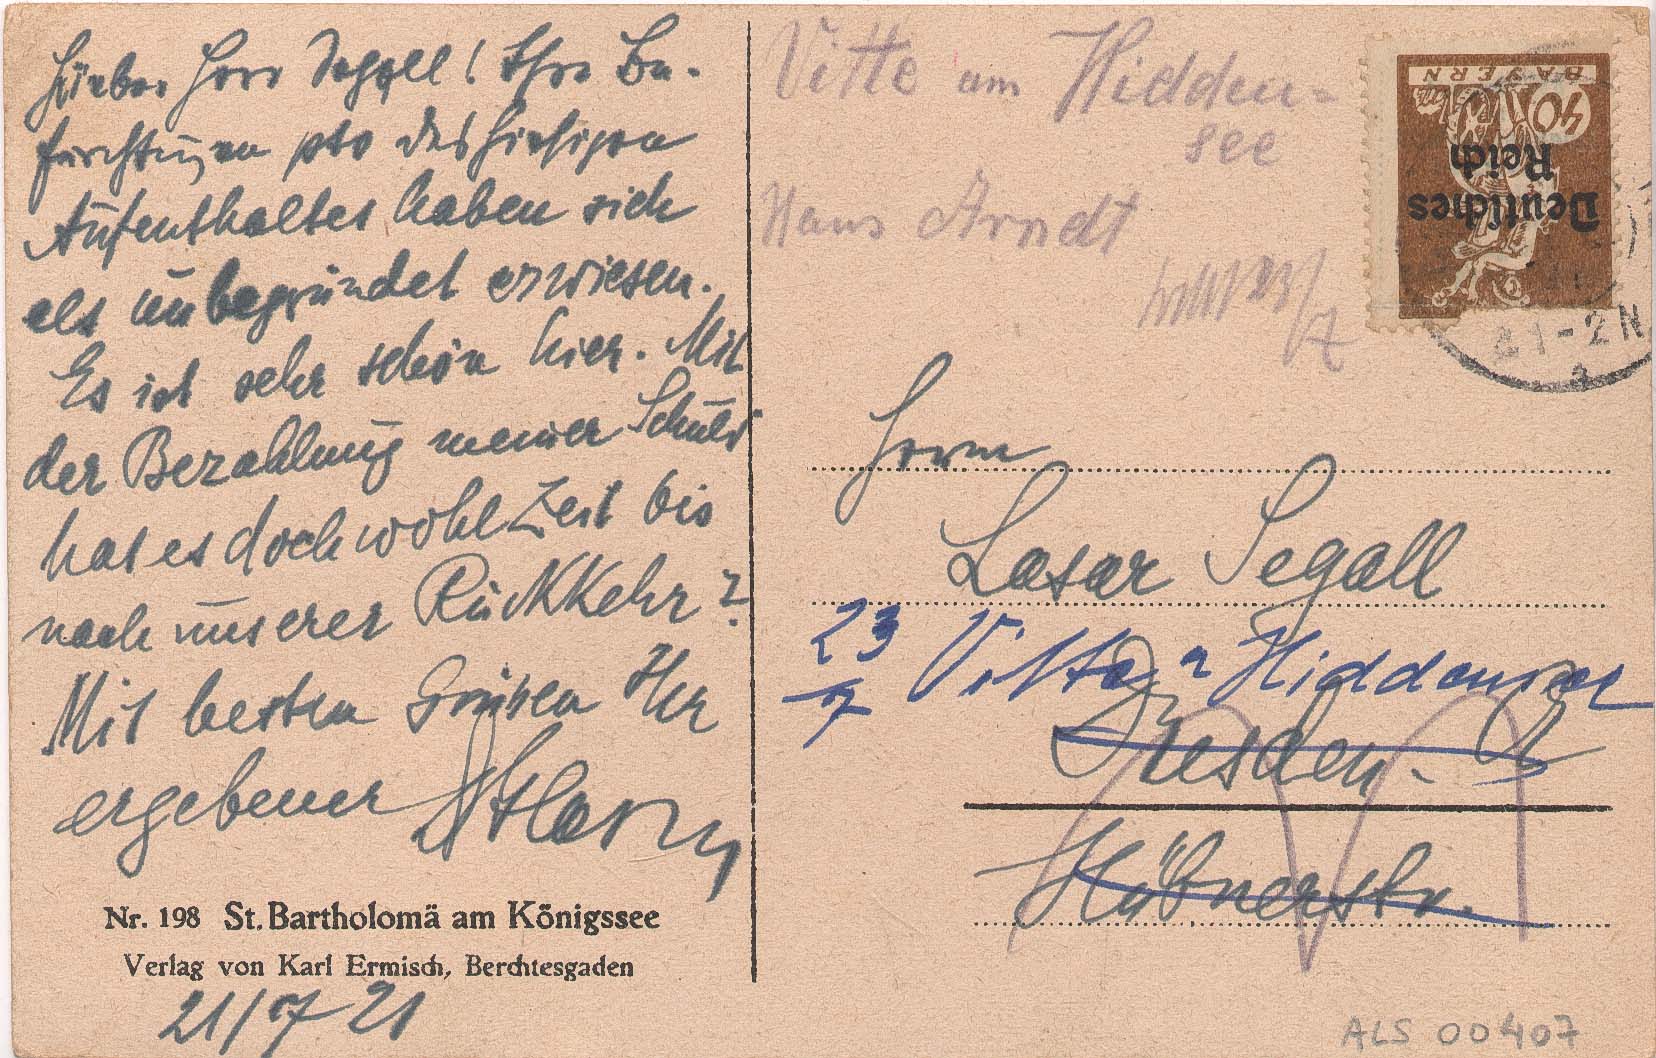 Lieber Herr Segall! Ihre Be-
fürchtungen pto des hiesigen
Aufenthaltes haben sich
als unbegründet erwiesen.
Es ist sehr schön hier. Mit
der Bezahlung meiner Schuld
hat es doch wohl Zeit bis
nach unserer Rückkehr?
Mit besten Grüßen Ihr
ergebener
Nr. 198 St. Bartholomä am Königssee
Verlag von Karl Ermisch, Berchtesgaden
21/7 21
Vitte am Hidden-
see
Hans Arndt
BAYERN
40
Deutsches
Reich
1-2N
Herrn
Lasar Segall
23/7 Vitte a Hiddensee
Dresden.
Hübnerstr.
ALS 00407